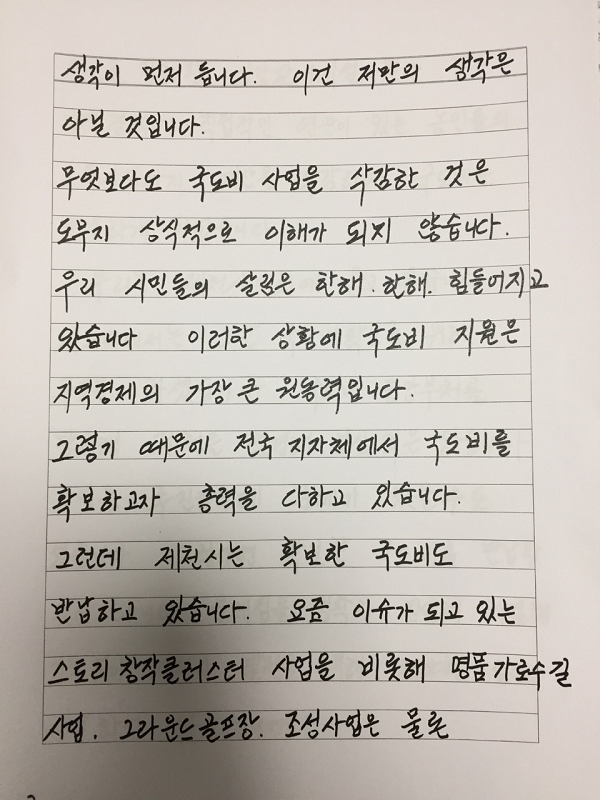 생각이 먼저 듭니다. 이건 저만의 생각은
아닐 것입니다.
무엇보다도 국도비 사업을 삭감한 것은
도무지 상식적으로 이해가 되지 않습니다.
우리 시민들의 살림은 한해. 한해. 힘들어지고
있습니다 이러한 상황에 국도비 지원은
지역경제의 가장 큰 원동력입니다.
그렇기 때문에 전국 지자체에서 국도비를
확보하고자 총력을 다하고 있습니다.
그런데 제천시는 확보한 국도비도
반납하고 있습니다. 요즘 이슈가 되고 있는
스토리 창작클러스터 사업을 비롯해 명품가로수길
사업. 그라운드골프장. 조성사업은 물론